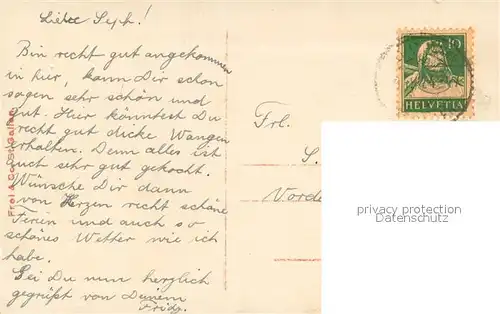 Liebe Seph!
Bin recht gut angekommen
in hier, kann Dir schon
sagen sehr schön und
gut. Hier könntest Du
recht gut dicke Wangen
erhalten. Denn alles ist
auch sehr gut gekocht.
Wünsche Dir dann
von Herzen recht schöne
Ferien und auch so
schönes Wetter wie ich
habe.
Sei Du nun herzlich
gegrüßt von Deinem
Fridy.
Frei & Co. St. Gallen
10
HELVETIA
Frl.
S.
Vorde
privacy protection
Datenschutz